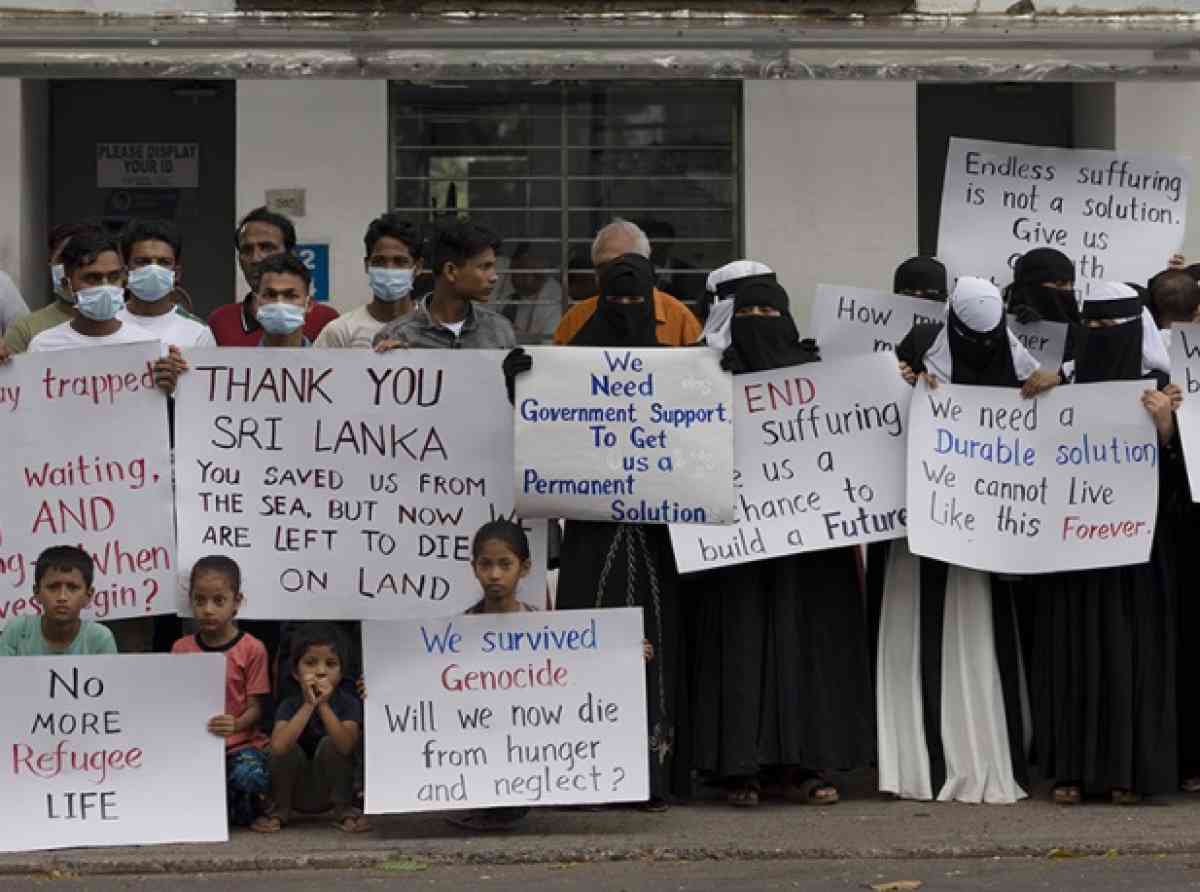 PLEASE DISPLAY
YOUR ID
2
Endless suffuring
is not a solution.
Give us
trapped
waiting,
AND
When
THANK YOU
SRI LANKA
YOU SAVED US FROM
THE SEA, BUT NOW WE
ARE LEFT TO DIE
ON LAND
We
Need
Government Support.
To Get
us a
Permanent
Solution
END
suffuring
us a
chance to
build a Future
How
We need a
Durable solution
We cannot Live
Like this Forever.
No
MORE
Refugee
LIFE
We survived
Genocide
Will we now die
from hunger
and neglect?